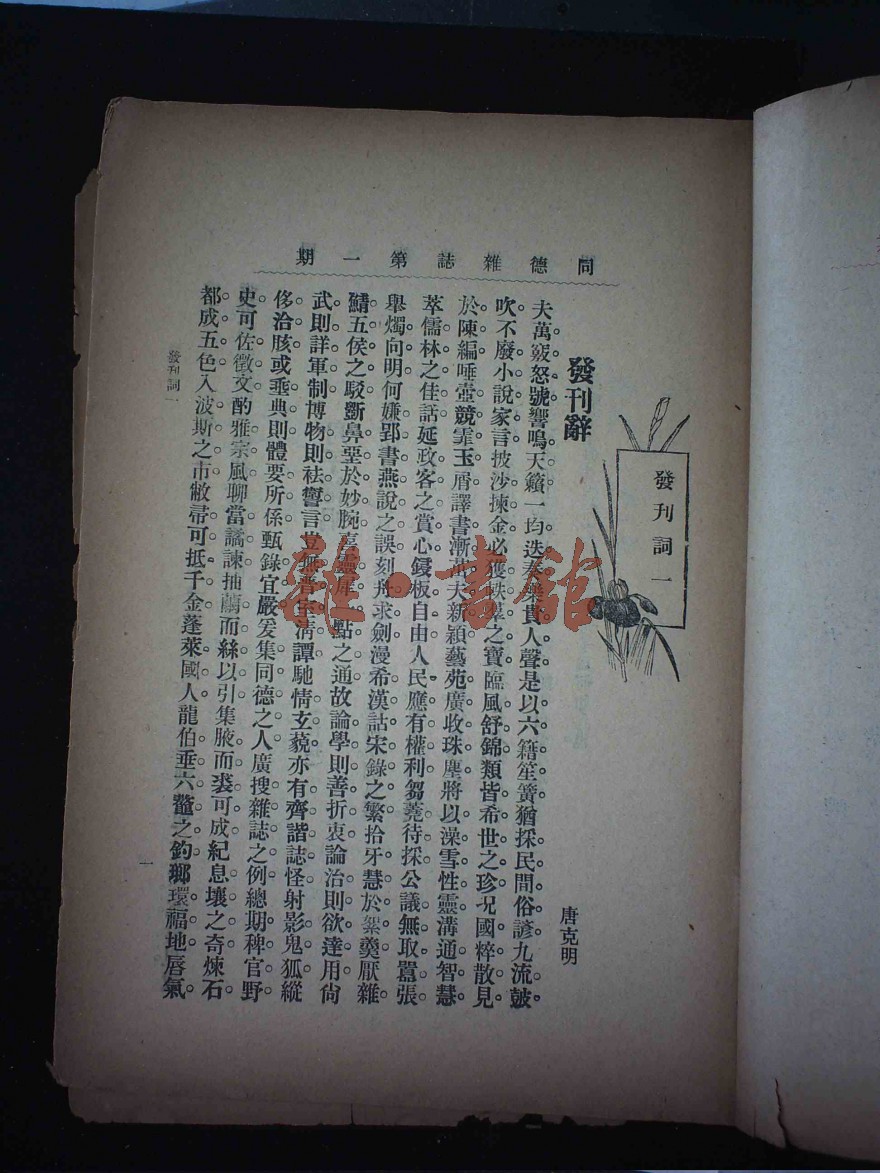 同德雜誌第一期
發刊詞一
發刊辭
唐克明
夫萬竅怒號。響嗚天籟。一均迭奏。樂貴人聲。是以六籍笙簧。猶採民間俗諺。九流皷
吹。不廢小說家言。披沙揀金。必獲軼羣之寶。臨風舒錦。類皆希世之珍。况國粹散見
於陳編。唾壺競霏玉屑。譯書漸出夫新穎。藝苑廣收珠塵。將以澡雪性靈。溝通智慧。
萃儒林之佳話。延政客之賞心。鋟板自由。人民應有權利。芻蕘待採。公議無取囂張。
舉燭向明。何嫌郢書燕說之誤。刻舟求劍。漫希漢詁宋錄之繁。拾牙慧於絮羹。厭雜
鯖五侯之駁。斵鼻堊於妙腕。喜靈犀一點之通。故論學則善折衷。論治則欲達用。尙
武則詳軍制。博物則祛讏言。豈無晉宋淸譚。馳情玄藐。亦有齊諧誌怪。射影鬼狐。縱
侈洽胲。或乖典則。體要所係。甄錄宜嚴。爰集同德之人。廣搜雜誌之例。總期稗官野
史。可佐徵文。酌雅宗風。聊當譎諫。抽繭而絲以引。集腋而裘可成。紀息壤之奇。煉石
都成五色。入波斯之市。敝帚可抵千金。蓬萊國人。龍伯垂六鼇之釣。瑯環福地。唇氣
發刊詞一
一
雜·書館